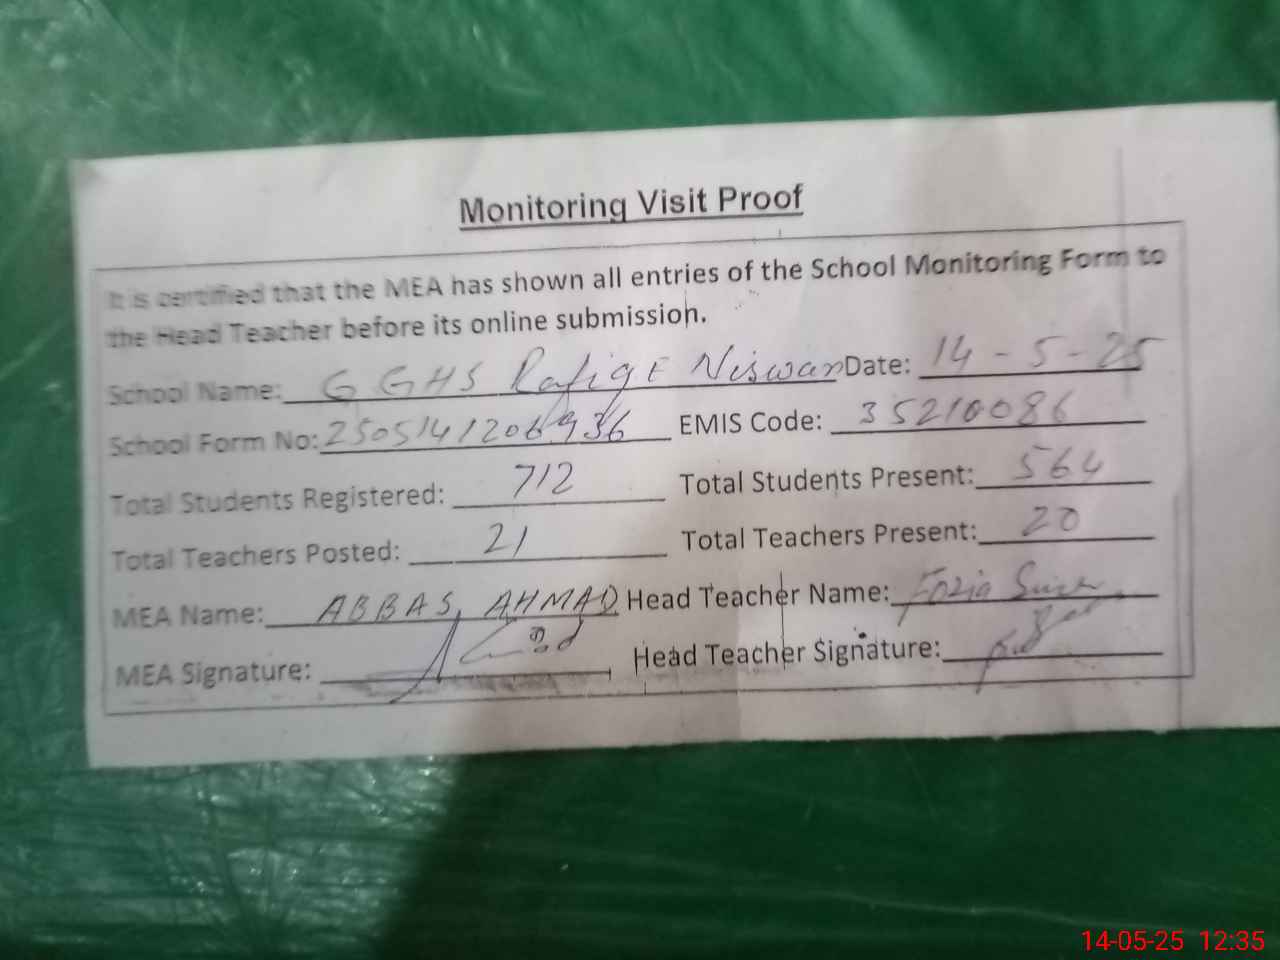 Monitoring Visit Proof
It is certified that the MEA has shown all entries of the School Monitoring Form to
the Head Teacher before its online submission.
School Name: G GHS Rafiqe Niswan Date: 14-5-25
School Form No: 2505141206936 EMIS Code: 35210086
Total Students Registered: 712 Total Students Present: 564
Total Teachers Posted: 21 Total Teachers Present: 20
MEA Name: ABBAS, AHMAD Head Teacher Name: Fozia
MEA Signature: Head Teacher Signature:
14-05-25 12:35